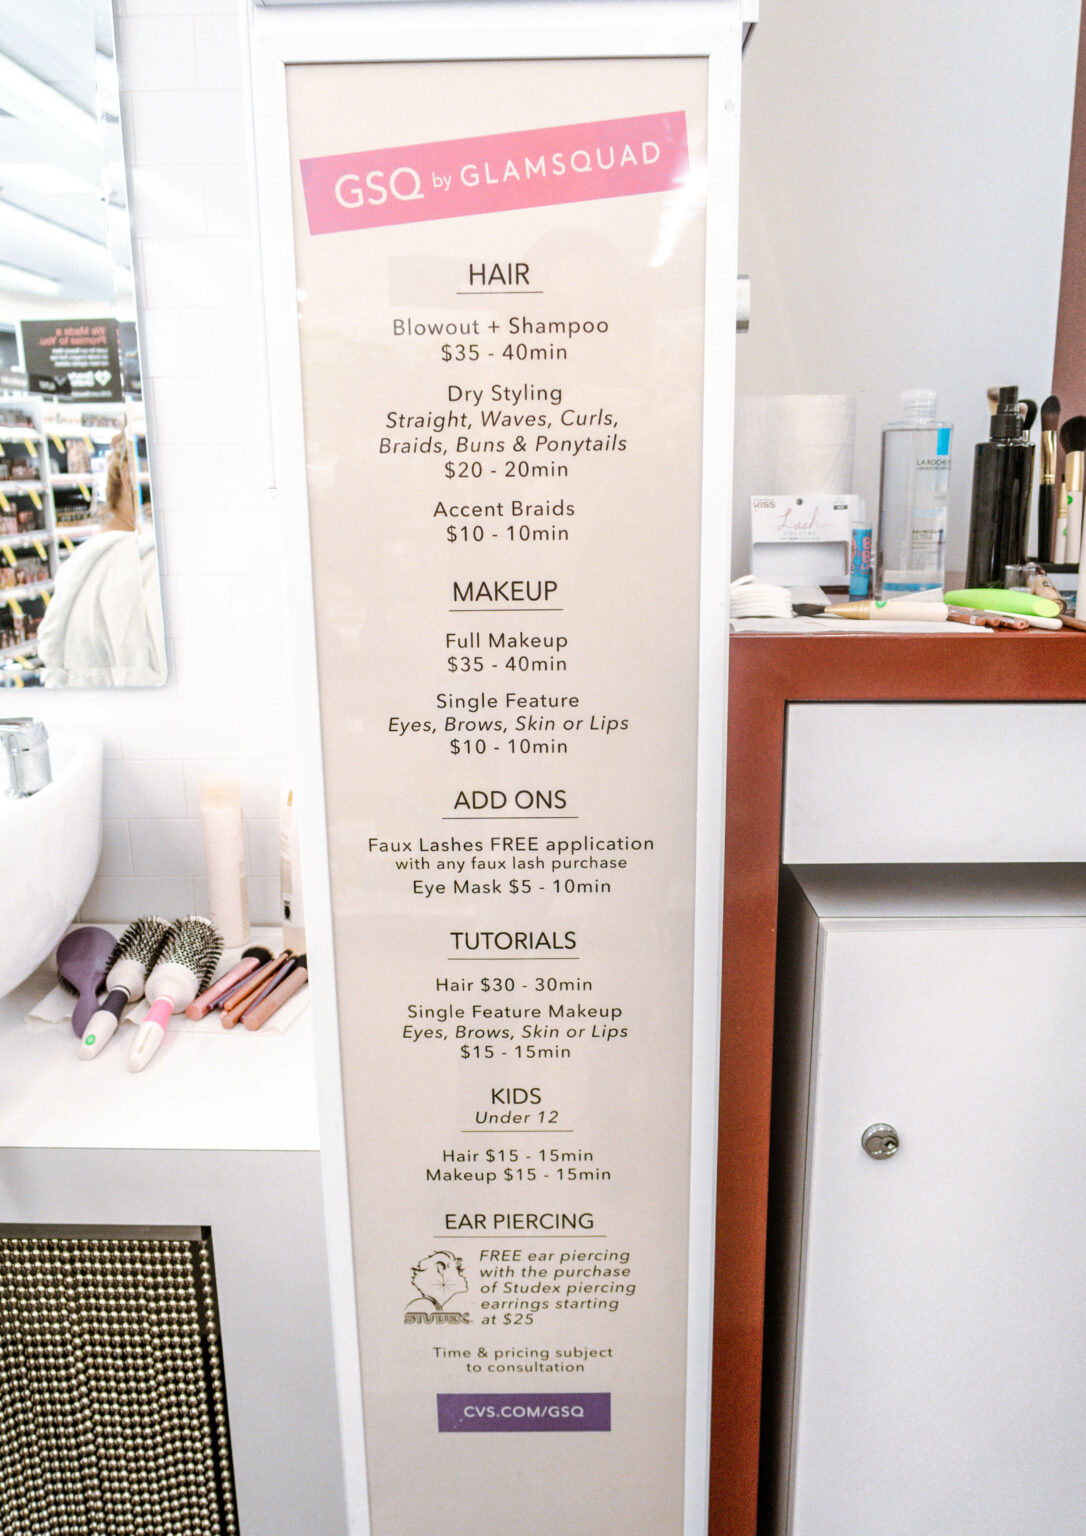 GSQ by GLAMSQUAD
HAIR
Blowout + Shampoo
$35 - 40min
Dry Styling
Straight, Waves, Curls,
Braids, Buns & Ponytails
$20 - 20min
Accent Braids
$10 - 10min
MAKEUP
Full Makeup
$35 - 40min
Single Feature
Eyes, Brows, Skin or Lips
$10 - 10min
ADD ONS
Faux Lashes FREE application
with any faux lash purchase
Eye Mask $5 - 10min
TUTORIALS
Hair $30 - 30min
Single Feature Makeup
Eyes, Brows, Skin or Lips
$15 - 15min
KIDS
Under 12
Hair $15 - 15min
Makeup $15 - 15min
EAR PIERCING
FREE ear piercing
with the purchase
of Studex piercing
earrings starting
at $25
STUDEX
Time & pricing subject
to consultation
CVS.COM/GSQ
We Made a
Promise to You.
KISS
Lash
COUTURE
LA ROCHE
ULTRA